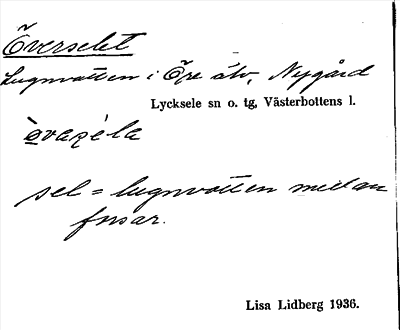 Överselet
Lugnvatten i Öre älv, Nygård
Lycksele sn o. tg, Västerbottens l.
sel = lugnvatten mellan
forsar.
Lisa Lidberg 1936.